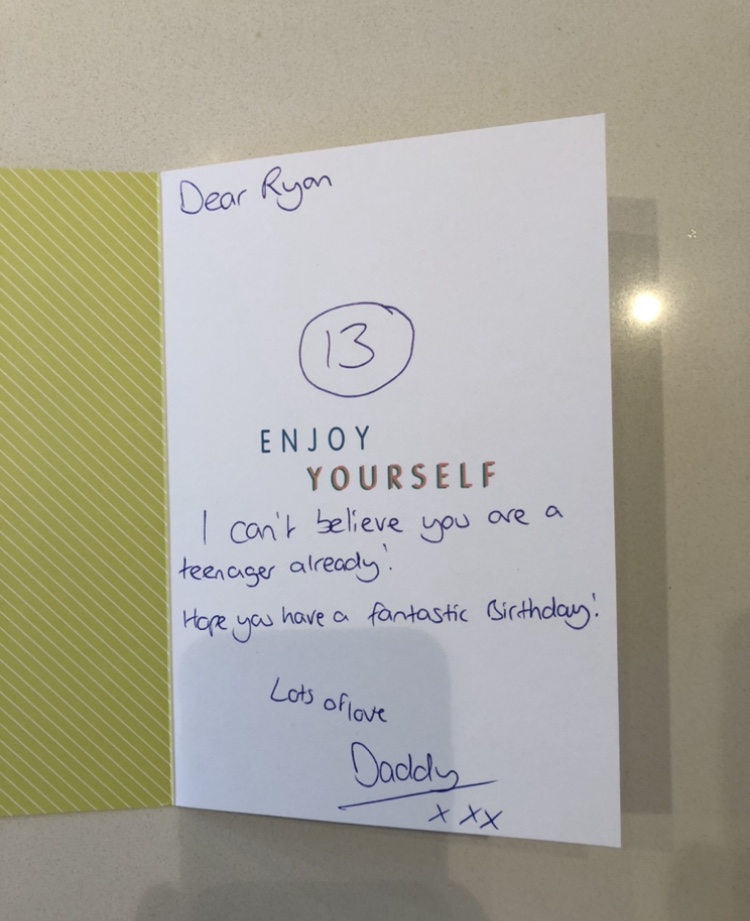 Dear Ryan
13
ENJOY
YOURSELF
I can't believe you are a
teenager already!
Hope you have a fantastic Birthday!
Lots of love
Daddy
x xx